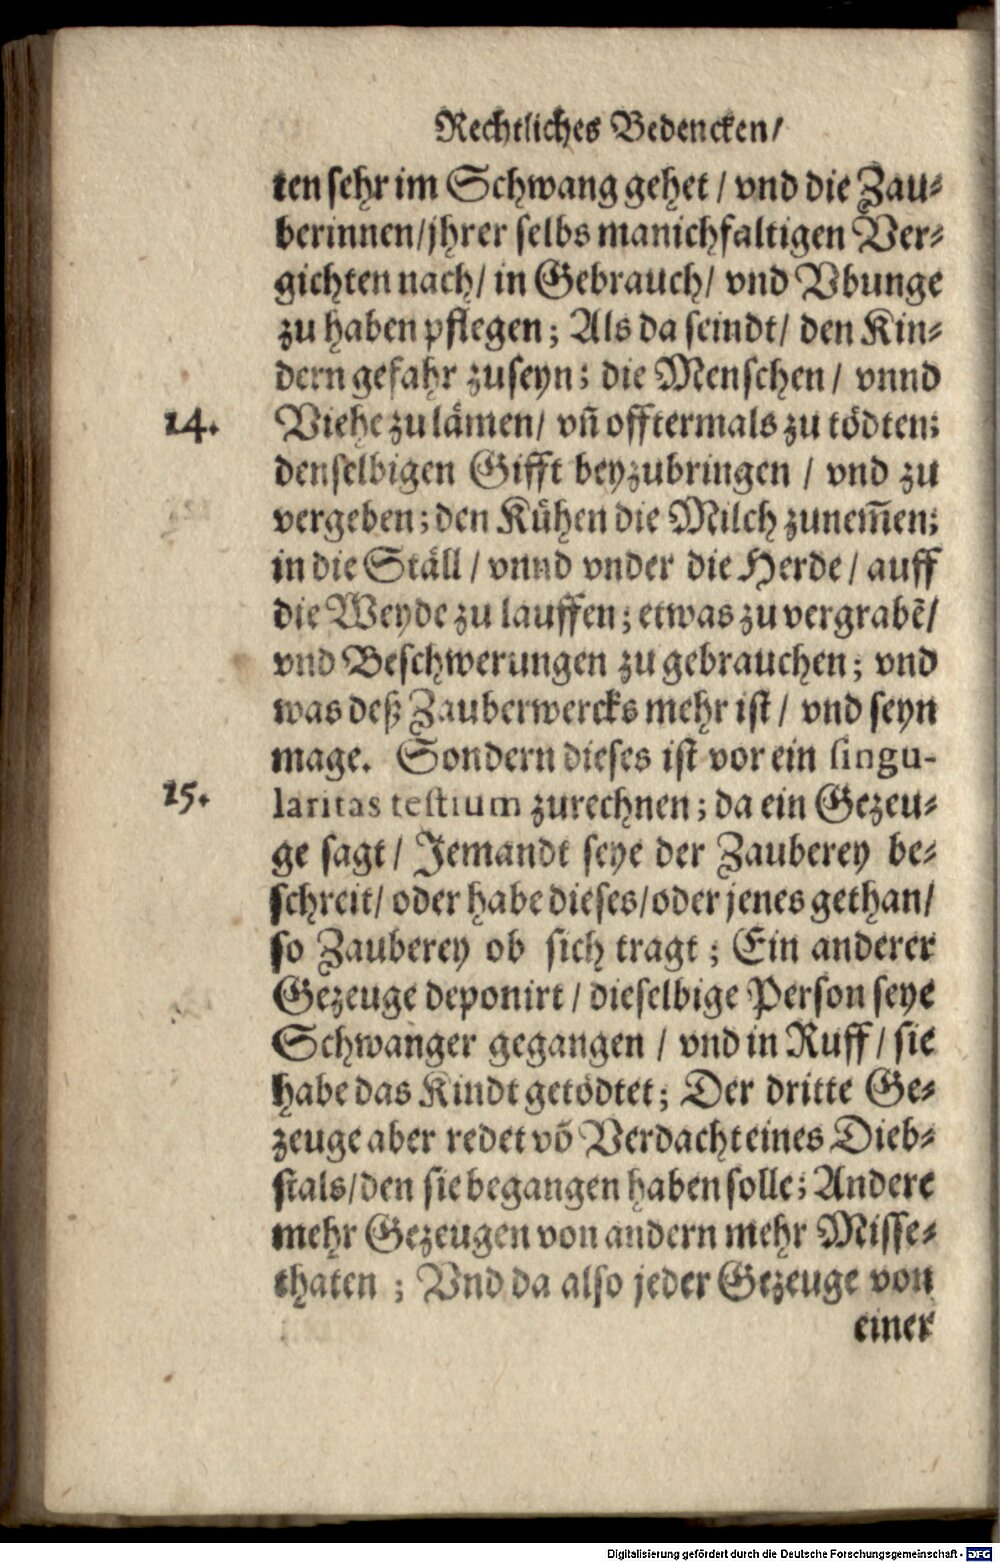 Rechtliches Bedencken/
ten sehr im Schwang gehet / vnd die Zau-
berinnen/jhrer selbs manichfaltigen Ver-
gichten nach/ in Gebrauch/ vnd Vbunge
zu haben pflegen; Als da seindt/ den Kin-
dern gefahr zuseyn; die Menschen / vnnd
14. Viehe zu lämen/ vn̄ offtermals zu tödten;
denselbigen Gifft beyzubringen / vnd zu
vergeben; den Kühen die Milch zunem̄en;
in die Ställ / vnnd vnder die Herde / auff
die Weyde zu lauffen; etwas zu vergrabē/
vnd Beschwerungen zu gebrauchen; vnd
was deß Zauberwercks mehr ist / vnd seyn
mage. Sondern dieses ist vor ein singu-
15. laritas testium zurechnen; da ein Gezeu-
ge sagt / Jemandt seye der Zauberey be-
schreit/ oder habe dieses/oder jenes gethan/
so Zauberey ob sich tragt; Ein anderer
Gezeuge deponirt / dieselbige Person seye
Schwanger gegangen / vnd in Ruff / sie
habe das Kindt getödtet; Der dritte Ge-
zeuge aber redet vō Verdacht eines Dieb-
stals/den sie begangen haben solle; Andere
mehr Gezeugen von andern mehr Misse-
thaten ; Vnd da also jeder Gezeuge von
einer
Digitalisierung gefördert durch die Deutsche Forschungsgemeinschaft - DFG